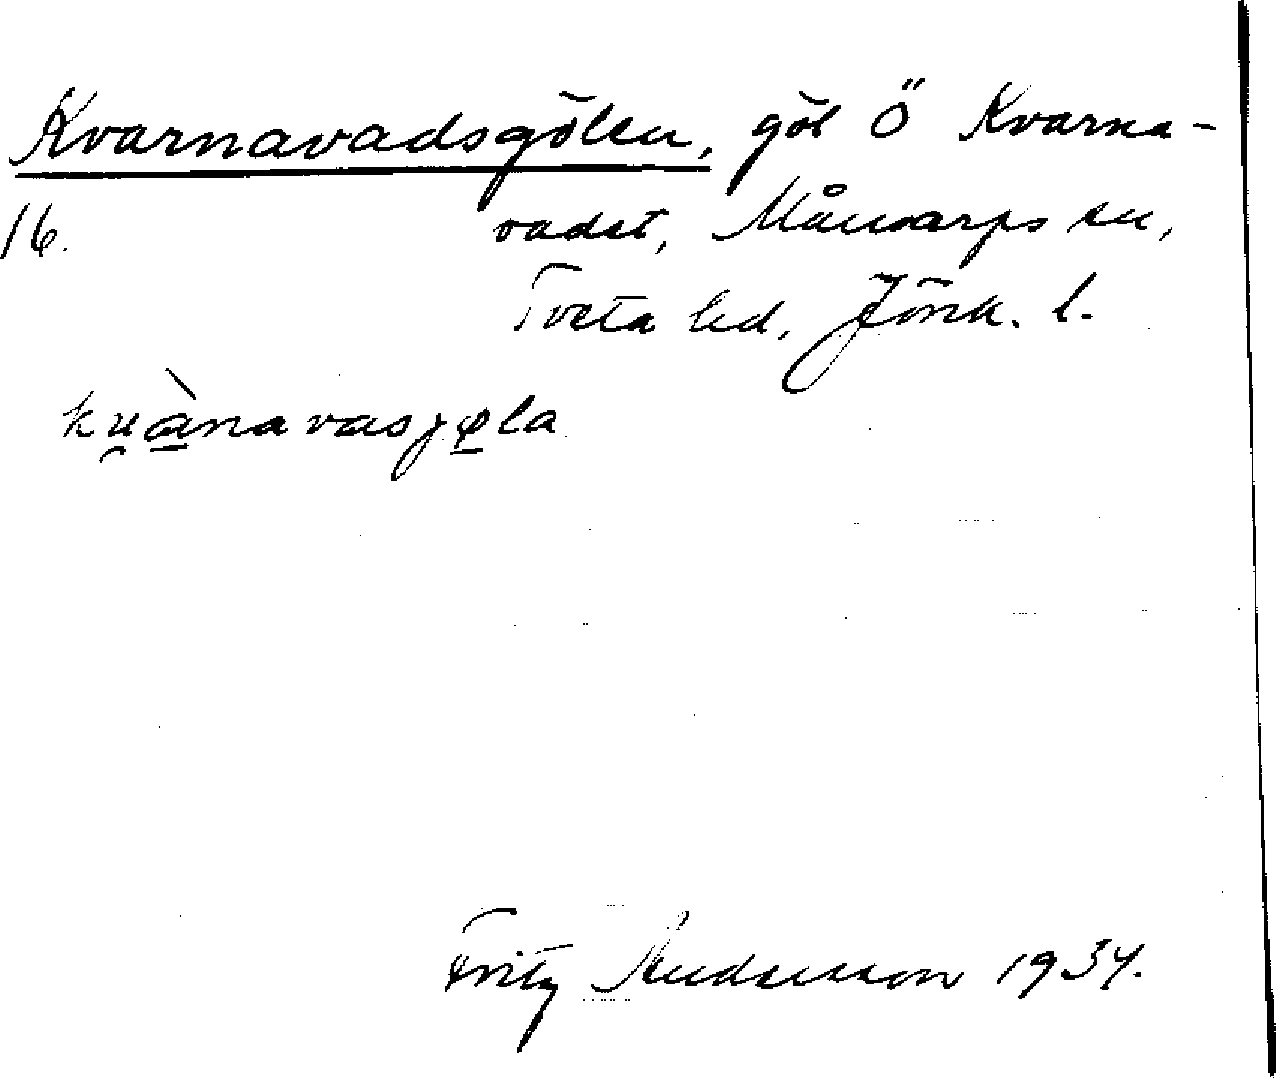 Kvarnavadsgölen, göl Ö Kvarna-
16. vadet, Månsarps sn,
Tveta hd, Jönk. l.
ku̯à̠navasjø̠la
Fritz Andersson 1934.